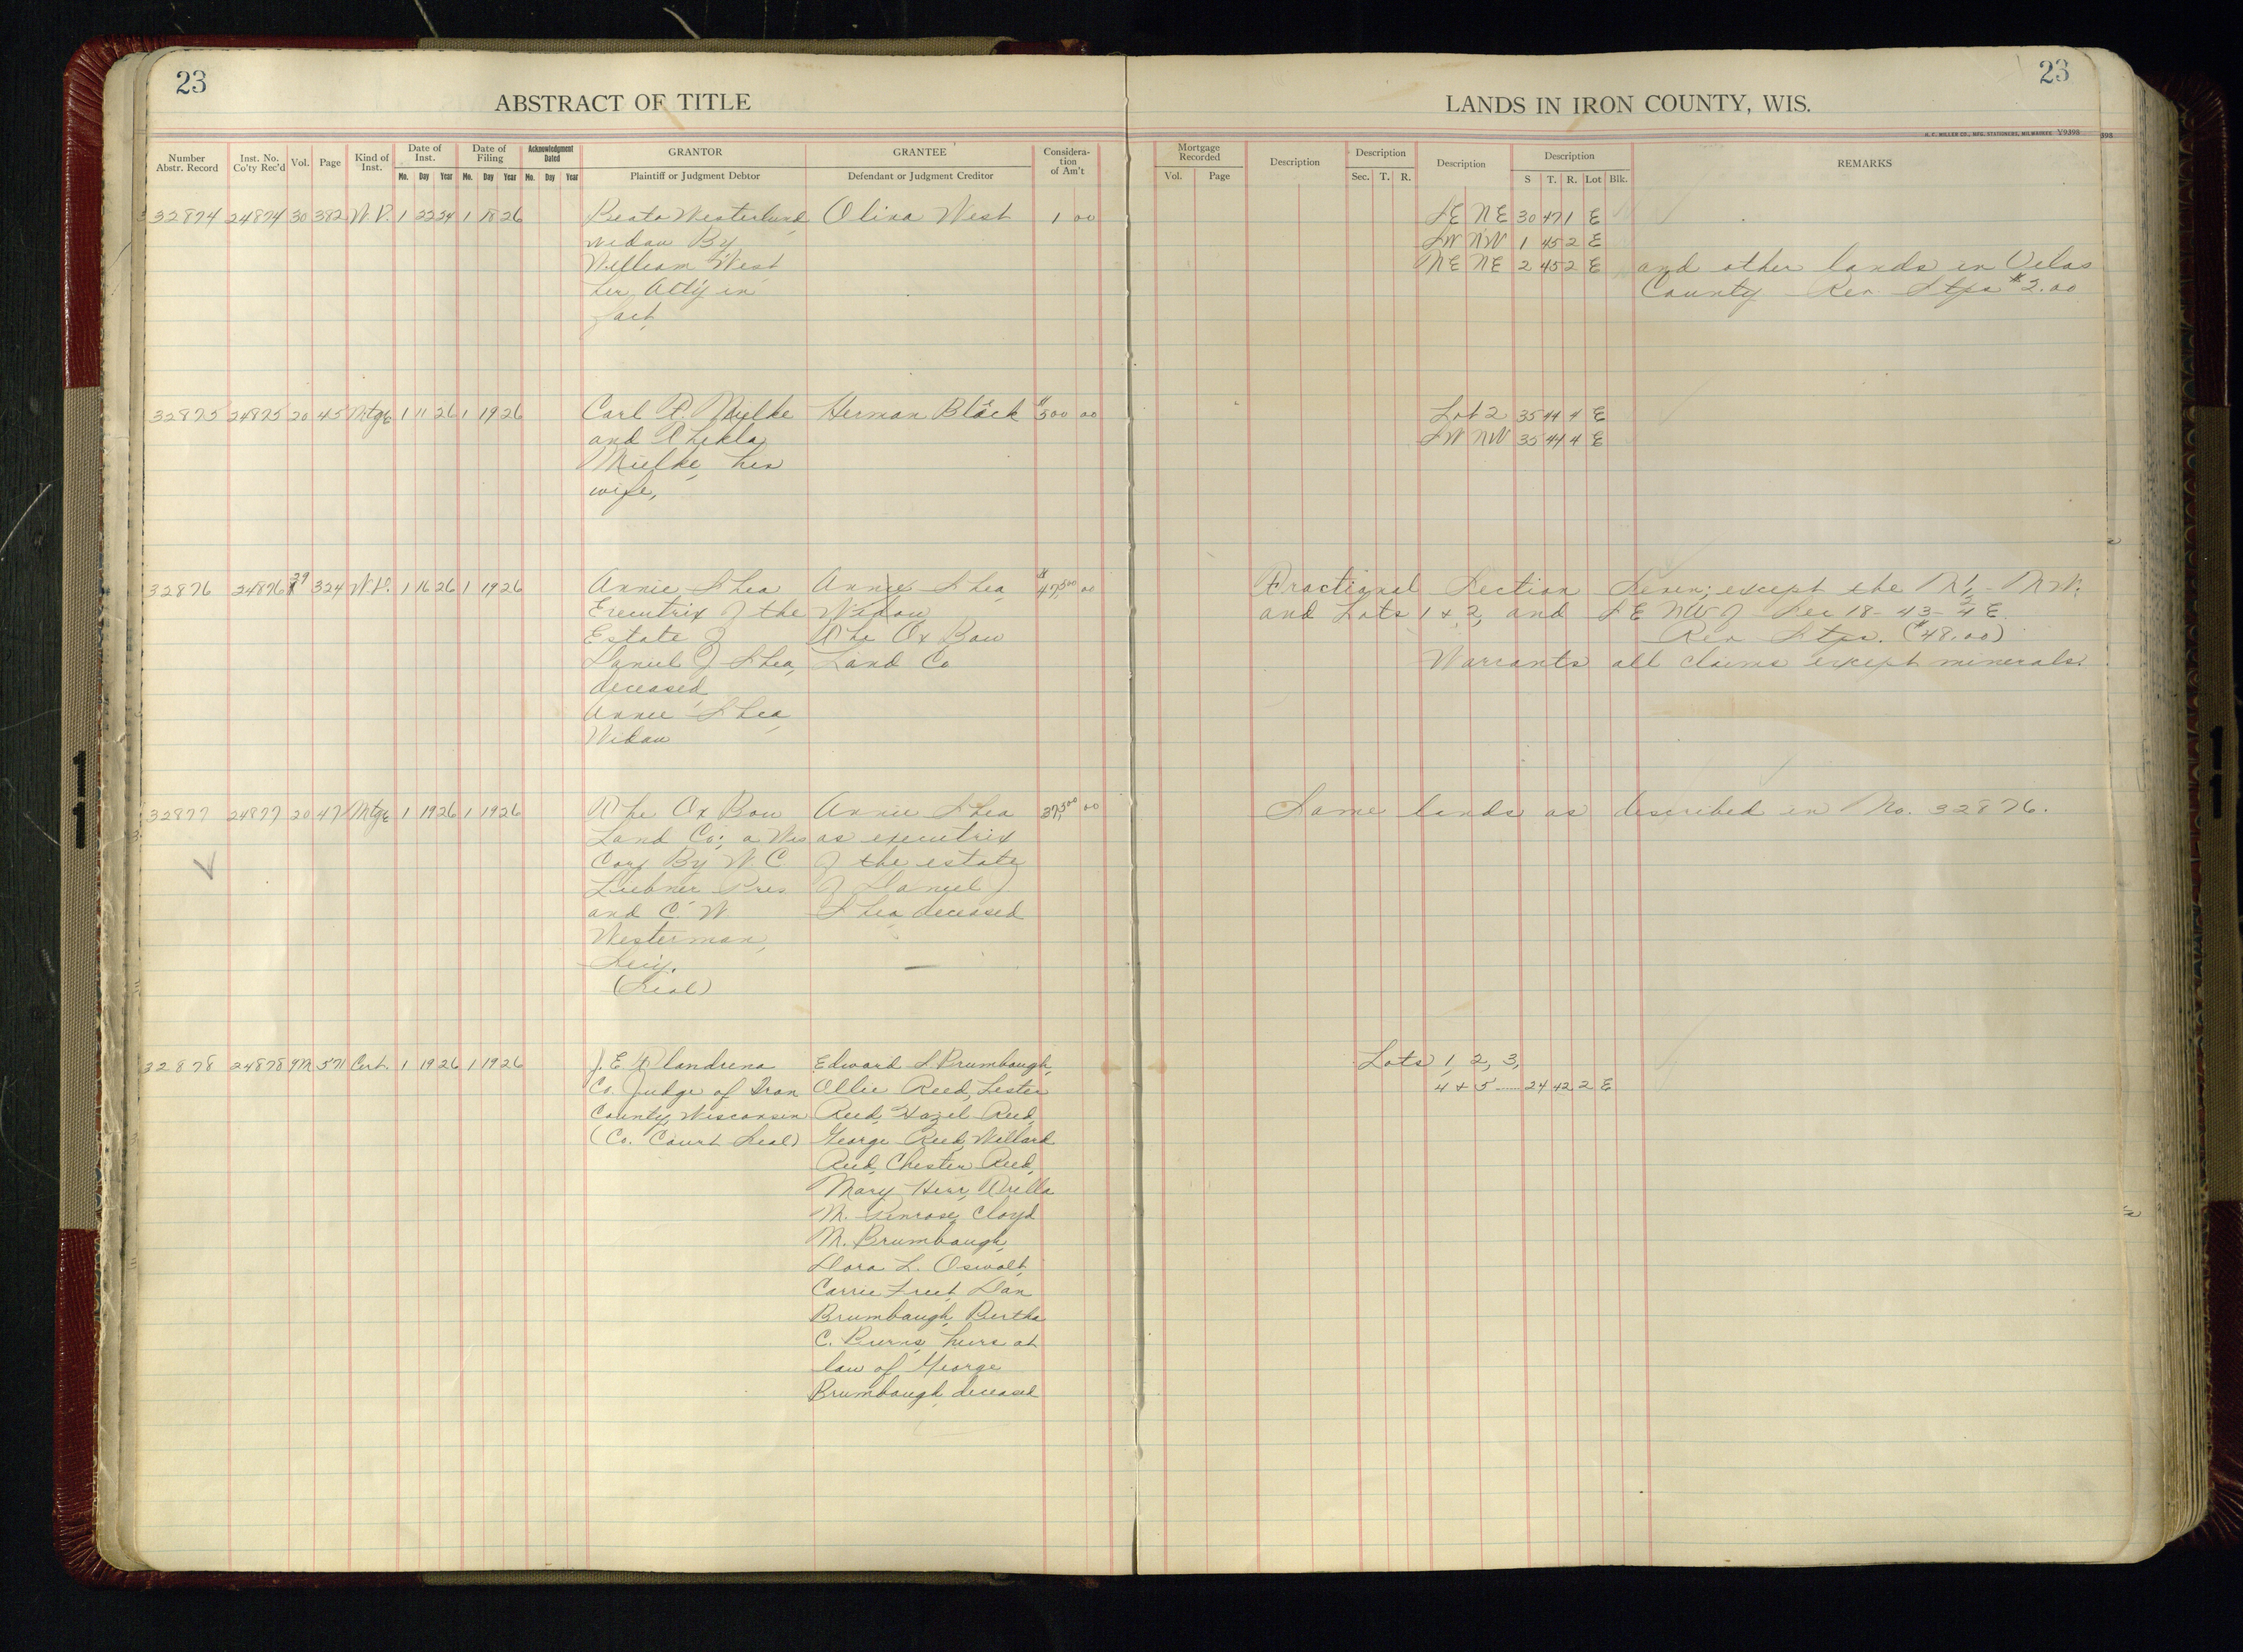 23
ABSTRACT OF TITLE
Number Abstr. Record Inst. No. Co'ty Rec'd Vol. Page Kind of Inst. Date of Inst. Date of Filing Acknowledgment Dated GRANTOR GRANTEE Considera-tion of Am't
Mo. Day Year Mo. Day Year Mo. Day Year Plaintiff or Judgment Debtor Defendant or Judgment Creditor
32874 24874 30 382 W.D. 1 22 24 1 18 26 Beata Westerlund Olina West 1 00
widow By
William West
her Att'y in
fact
32875 24875 20 45 Mtge 1 11 26 1 19 26 Carl P. Mielke Herman Black $500 00
and Thekla
Mielke, his
wife,
32876 24876 29 324 W.D. 1 16 26 1 19 26 Annie Shea Annie Shea $47,500 00
Executrix of the Widow
Estate of The Ox Bow
Daniel J Shea, Land Co
deceased
Annie Shea,
Widow
32877 24877 20 47 Mtge 1 19 26 1 19 26 The Ox Bow Annie Shea 37,500 00
Land Co; a Wis as executrix
Corp By W. C of the estate
Liebner Pres of Daniel J
and C. W. Shea deceased
Westerman,
Sec'y.
(Seal)
32878 24878 9M 571 Cert. 1 19 26 1 19 26 J. E. Flandrena Edward S Brumbaugh,
Co. Judge of Iron Ollie Reed, Lester
County, Wisconsin Reed, Hazel Reed,
(Co. Court Seal) George Reed, Willard
Reed, Chester Reed,
Mary Herr,
M. Penrose, Cloyd
M. Brumbaugh,
Dora L. Oswalt,
Carrie Freet, Dan
Brumbaugh, Bertha
C. Burns, heirs at
law of George
Brumbaugh, deceased
23
LANDS IN IRON COUNTY, WIS.
H. C. MILLER CO., MFG. STATIONERS, MILWAUKEE Y9398
398
Mortgage Recorded Description Description Description Description REMARKS
Vol. Page Sec. T. R. S T. R. Lot Blk.
SE NE 30 47 1 E
SW NW 1 45 2 E
NE NE 2 45 2 E and other lands in Vilas
County Rev. Stps $2.00
Lot 2 35 44 4 E
SW NW 35 44 4 E
Fractional Section Seven; except the N 1/2 - NW.
and Lots 1 & 2, and SE NW of Sec 18-43-4 E
Rev Stps. ($48.00)
Warrants all claims except minerals.
Same lands as described in No. 32876.
Lots 1, 2, 3,
4 & 5 ...... 24 42 2 E